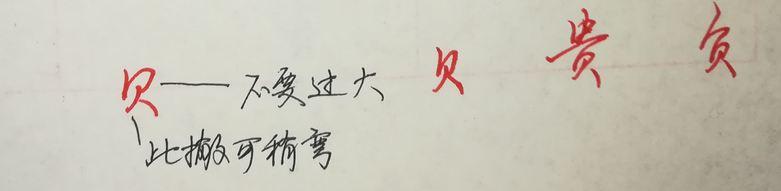 贝——不要过大 贝 貴 负
此撇可稍弯